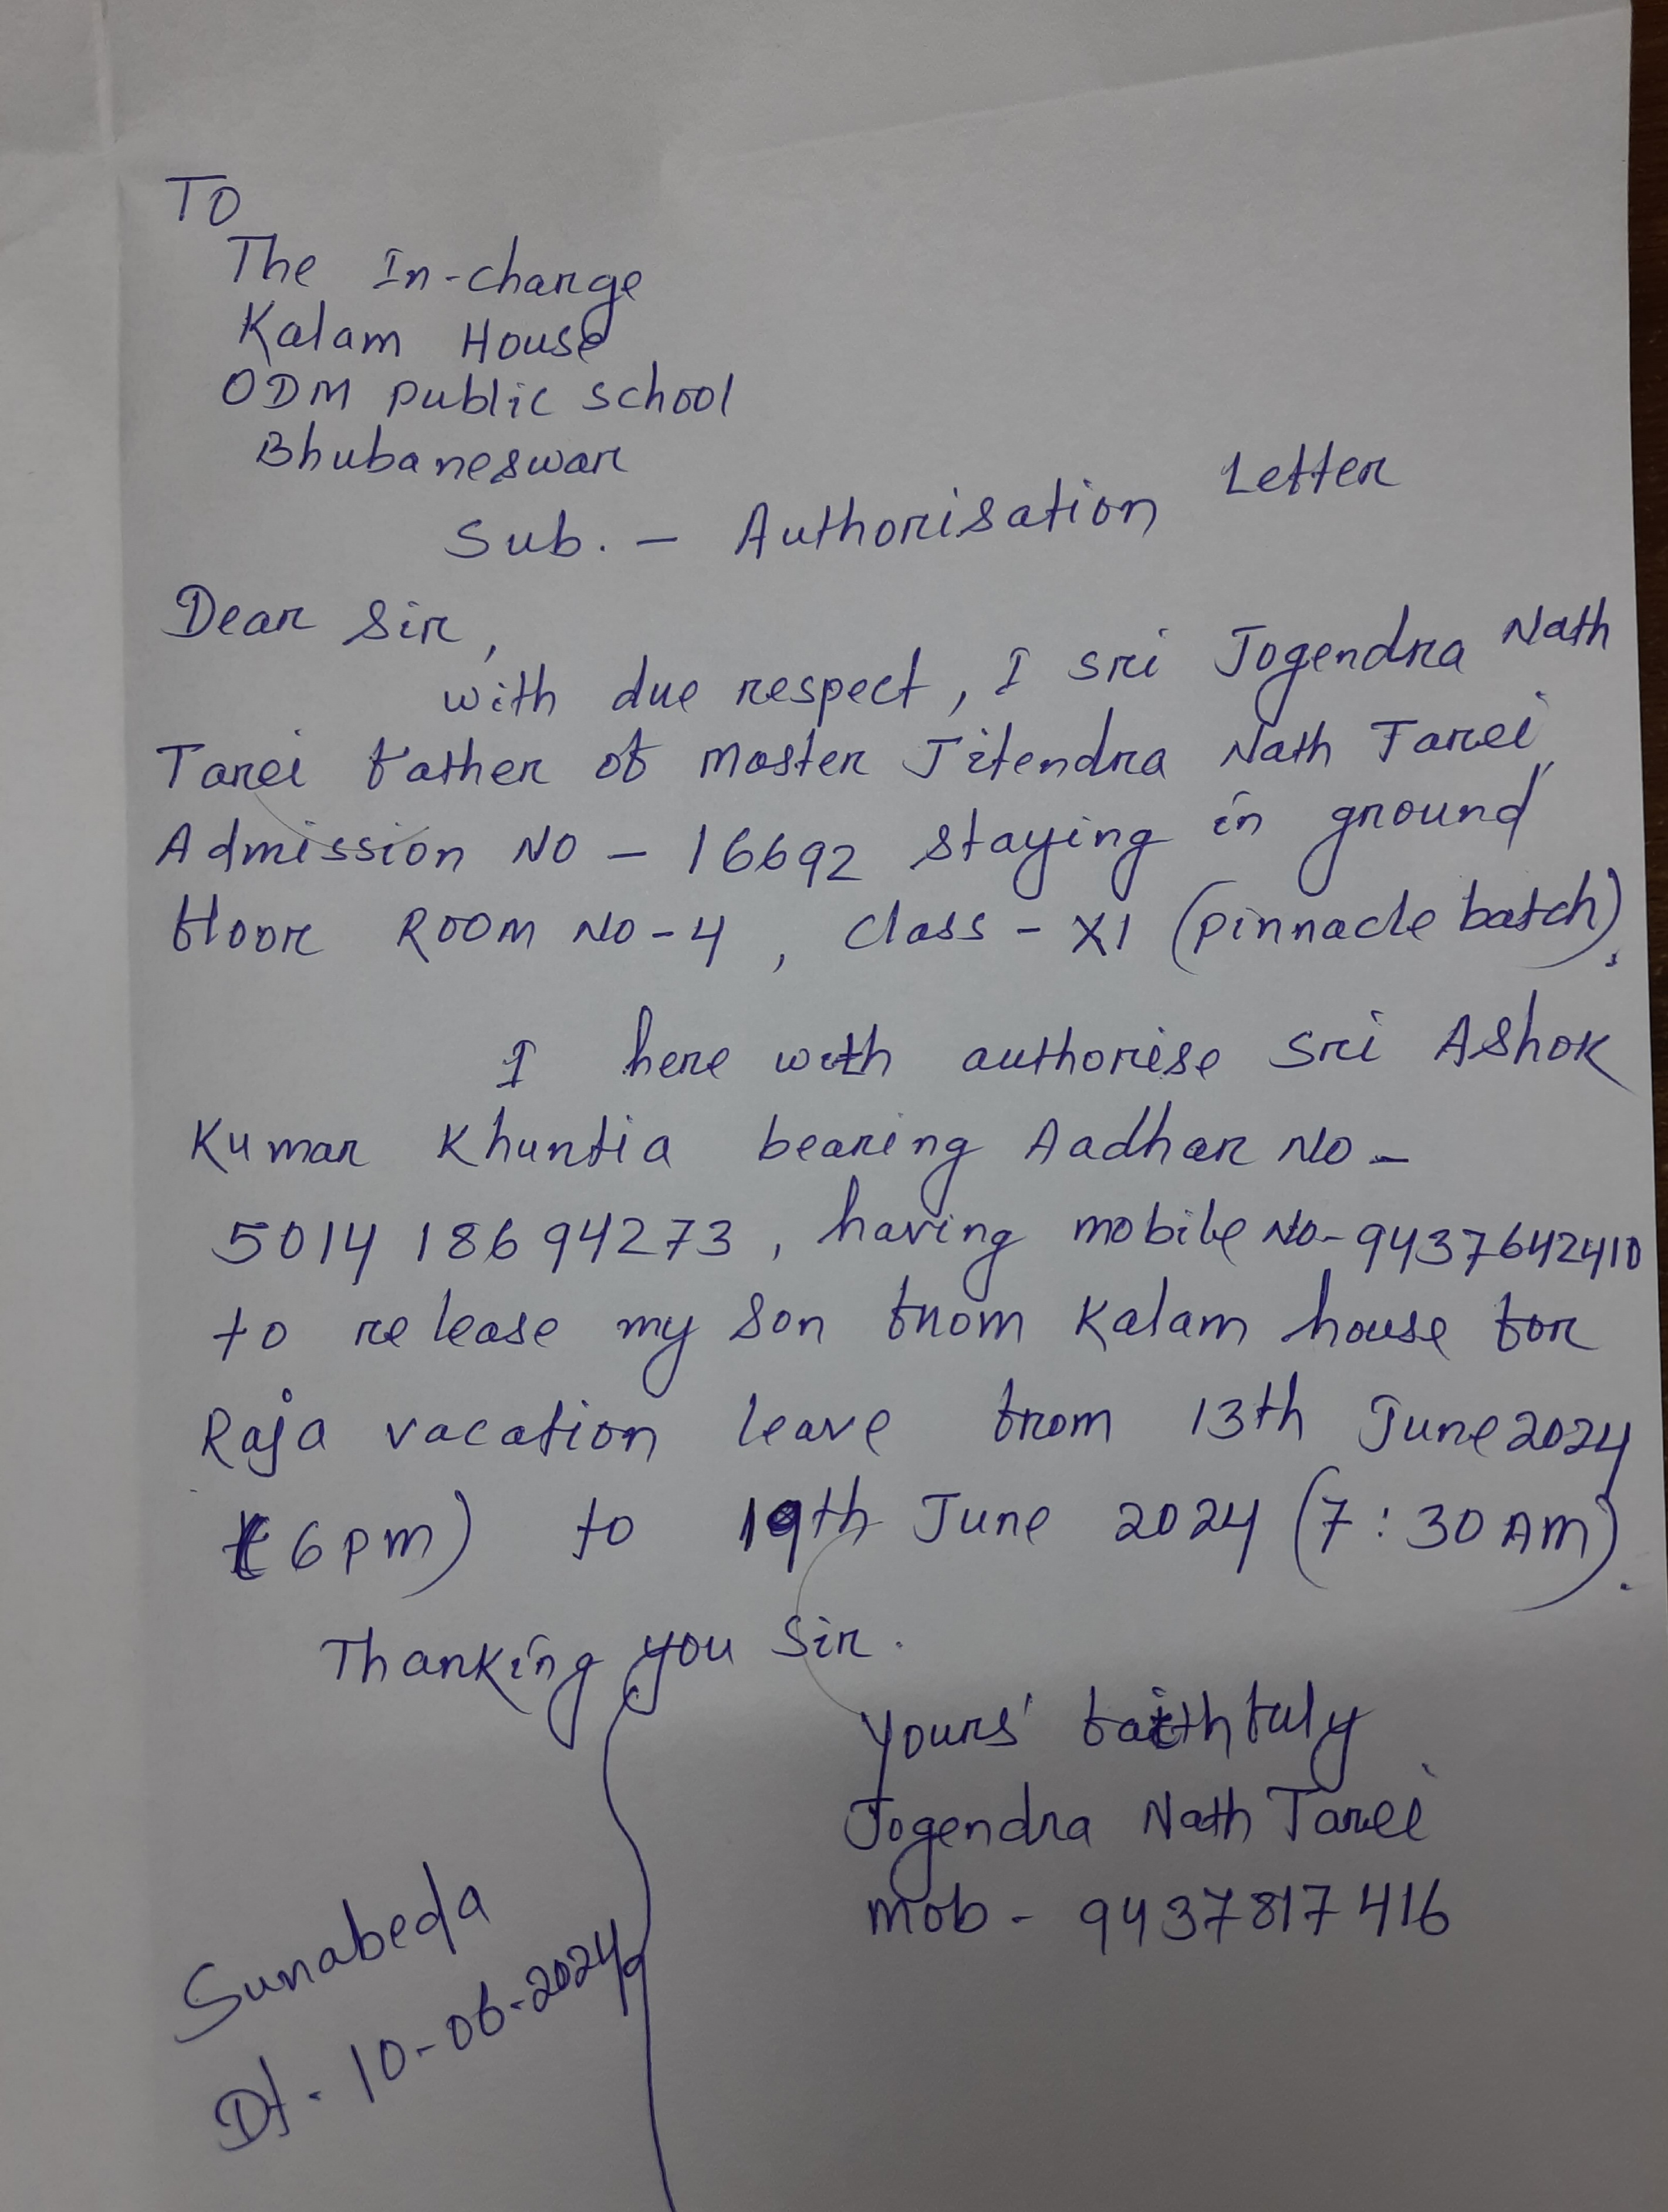 TO
The In-charge
Kalam House
ODM public school
Bhubaneswar
Sub. - Authorisation Letter
Dear Sir,
with due respect, I sri Jogendra Nath
Tarei father of master Jitendra Nath Tarei,
Admission NO - 16692 staying in ground
floor ROOM NO-4, class - XI (pinnacle batch).
I here with authorise sri Ashok
Kumar Khuntia bearing Aadhar NO-
5014 18694273, having mobile NO-9437642410
to release my son from Kalam house for
Raja vacation leave from 13th June 2024
(6pm) to 19th June 2024 (7:30 AM).
Thanking you Sir.
yours' faithfuly
Jogendra Nath Tarei
mob - 9437817416
Sunabeda
Dt. 10-06-2024